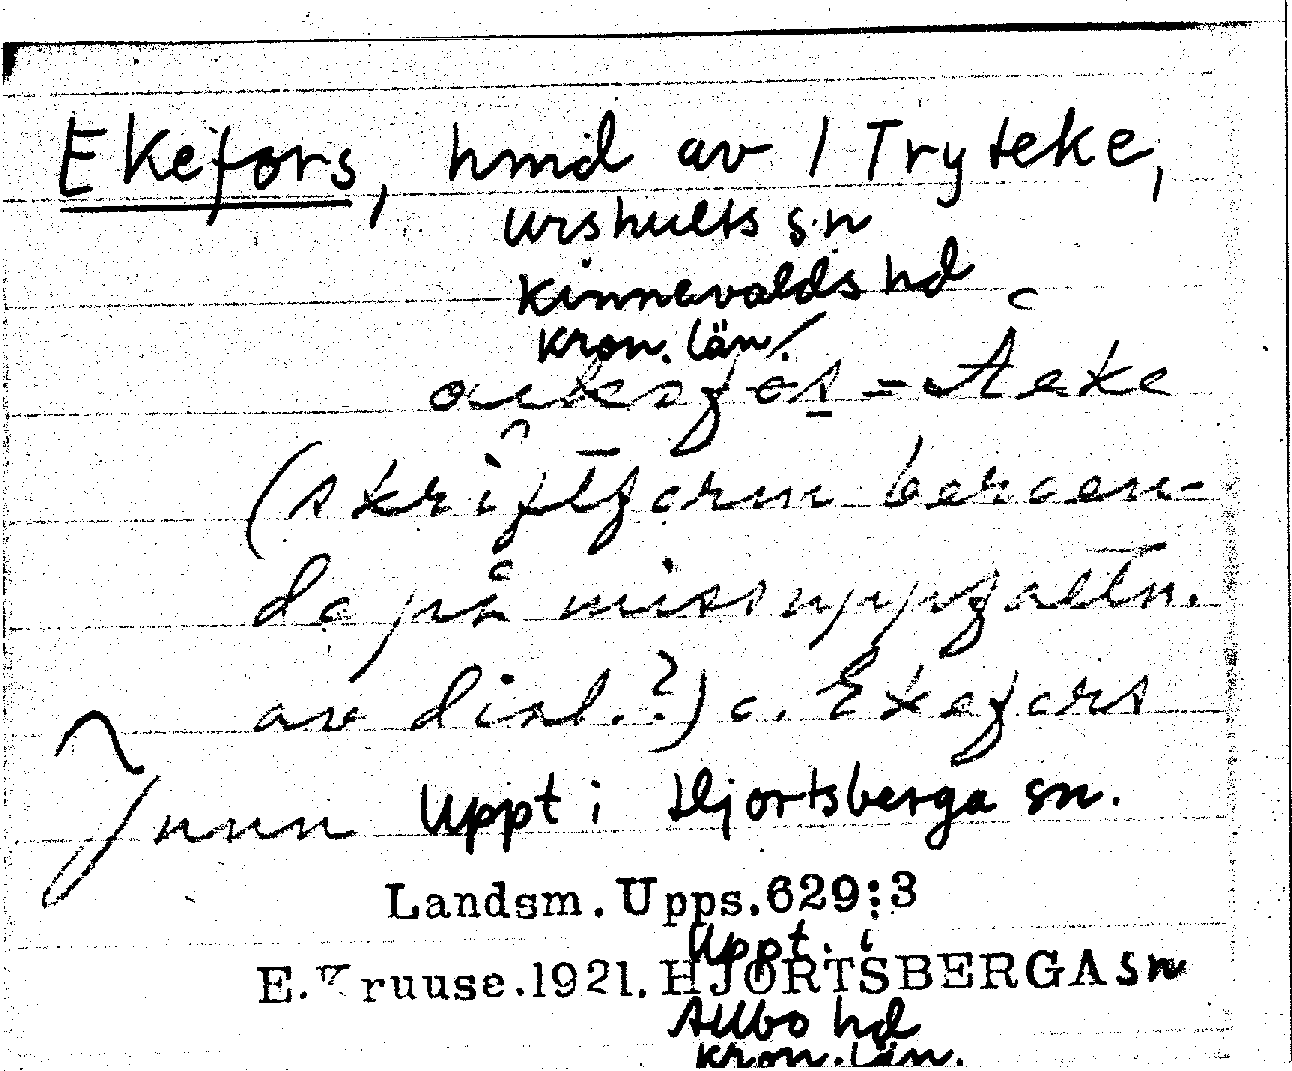 Ekefors, hmd av 1 Tryteke,
Urshults sn
Kinnevalds hd
Kron. län.
= Åeke
(skriftform beroen-
de på missuppfattn.
av dial.?) o. Ekefors
Uppt i Hjortsberga sn.
Landsm. Upps. 629:3
Uppt. i
E. Kruuse. 1921. HJORTSBERGA sn
Allbo hd
Kron. län.